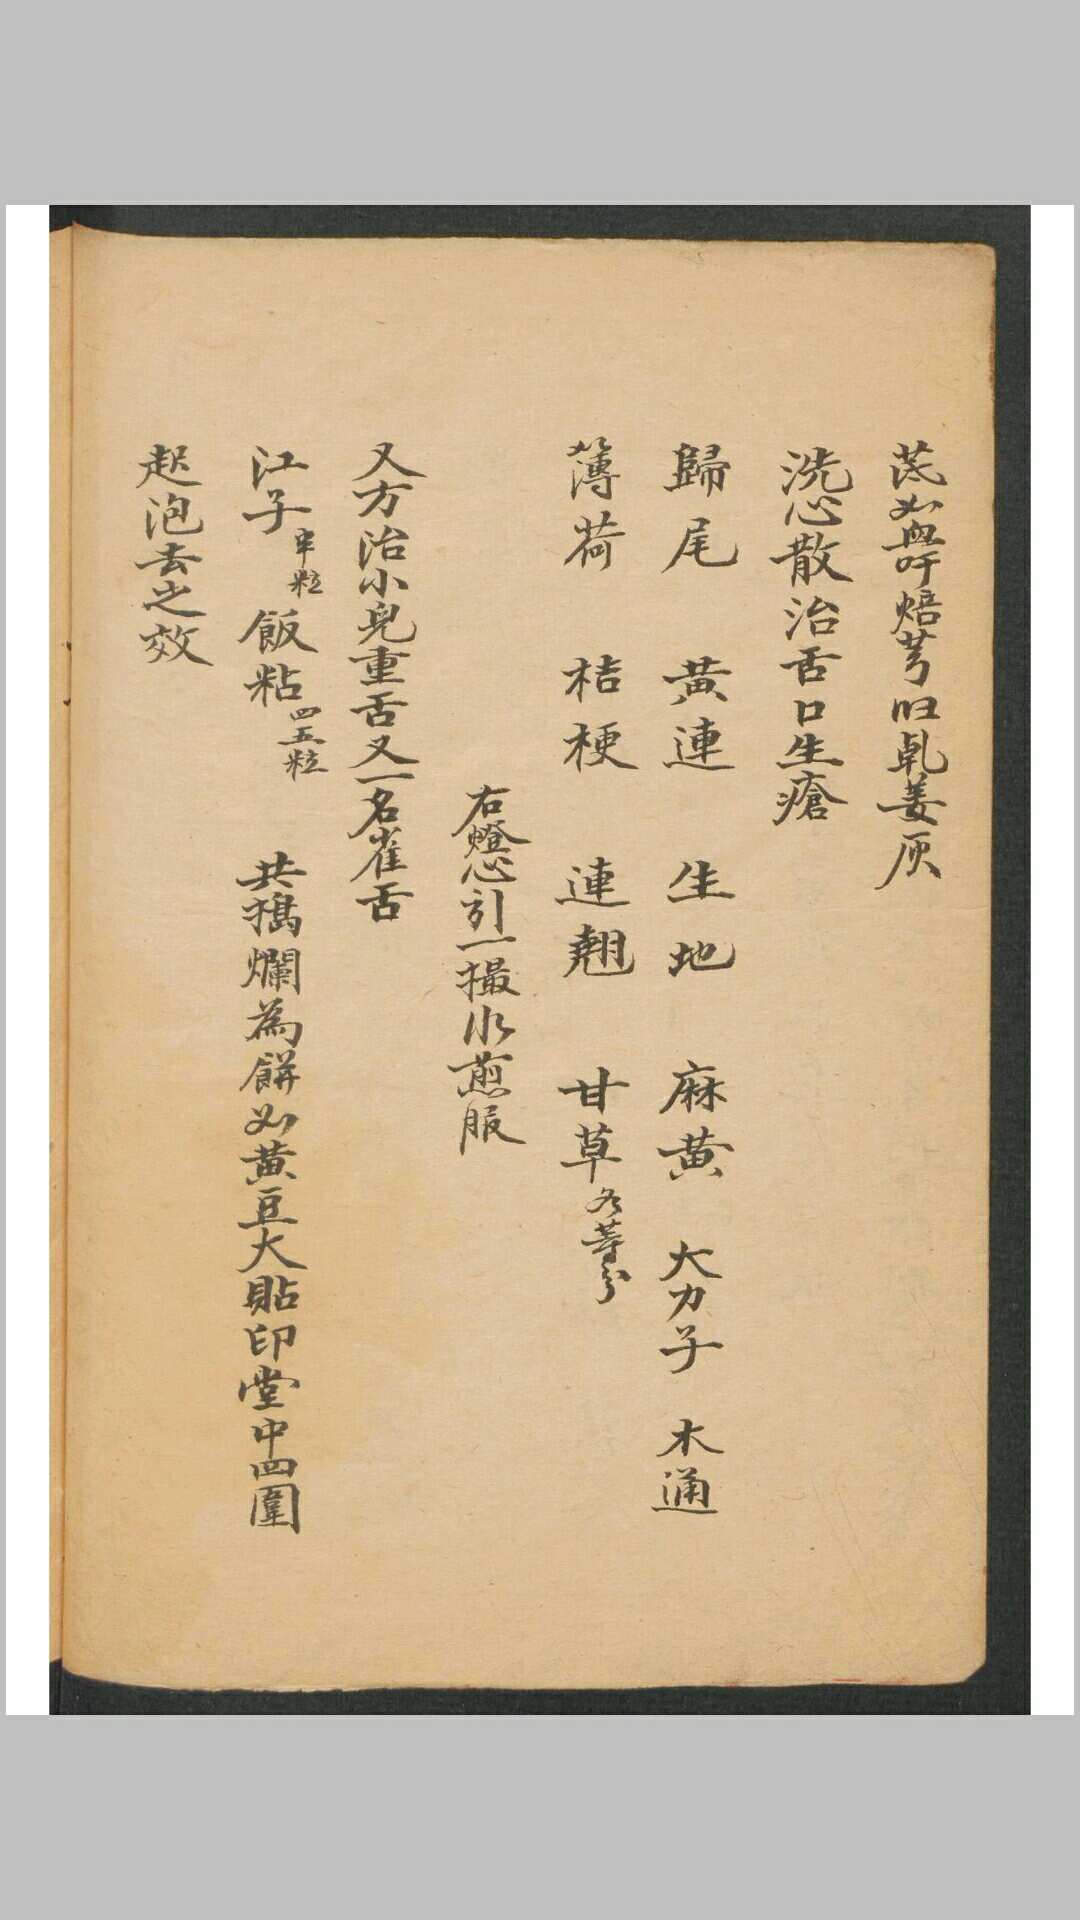 茋如無吁焙芎旧乹姜灰
洗心散治舌口生瘡
歸尾 黃連 生地 麻黃 大力子 木通
薄荷 桔梗 連翹 甘草各等分
右燈心引一撮水煎服
又方治小兒重舌又一名雀舌
江子半粒 飯粘四五粒 共搗爛為餅如黃豆大貼印堂中四圍
起泡去之效